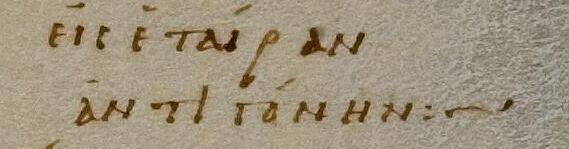 εἰς ἑταίραν
ἀντιγόνην:~